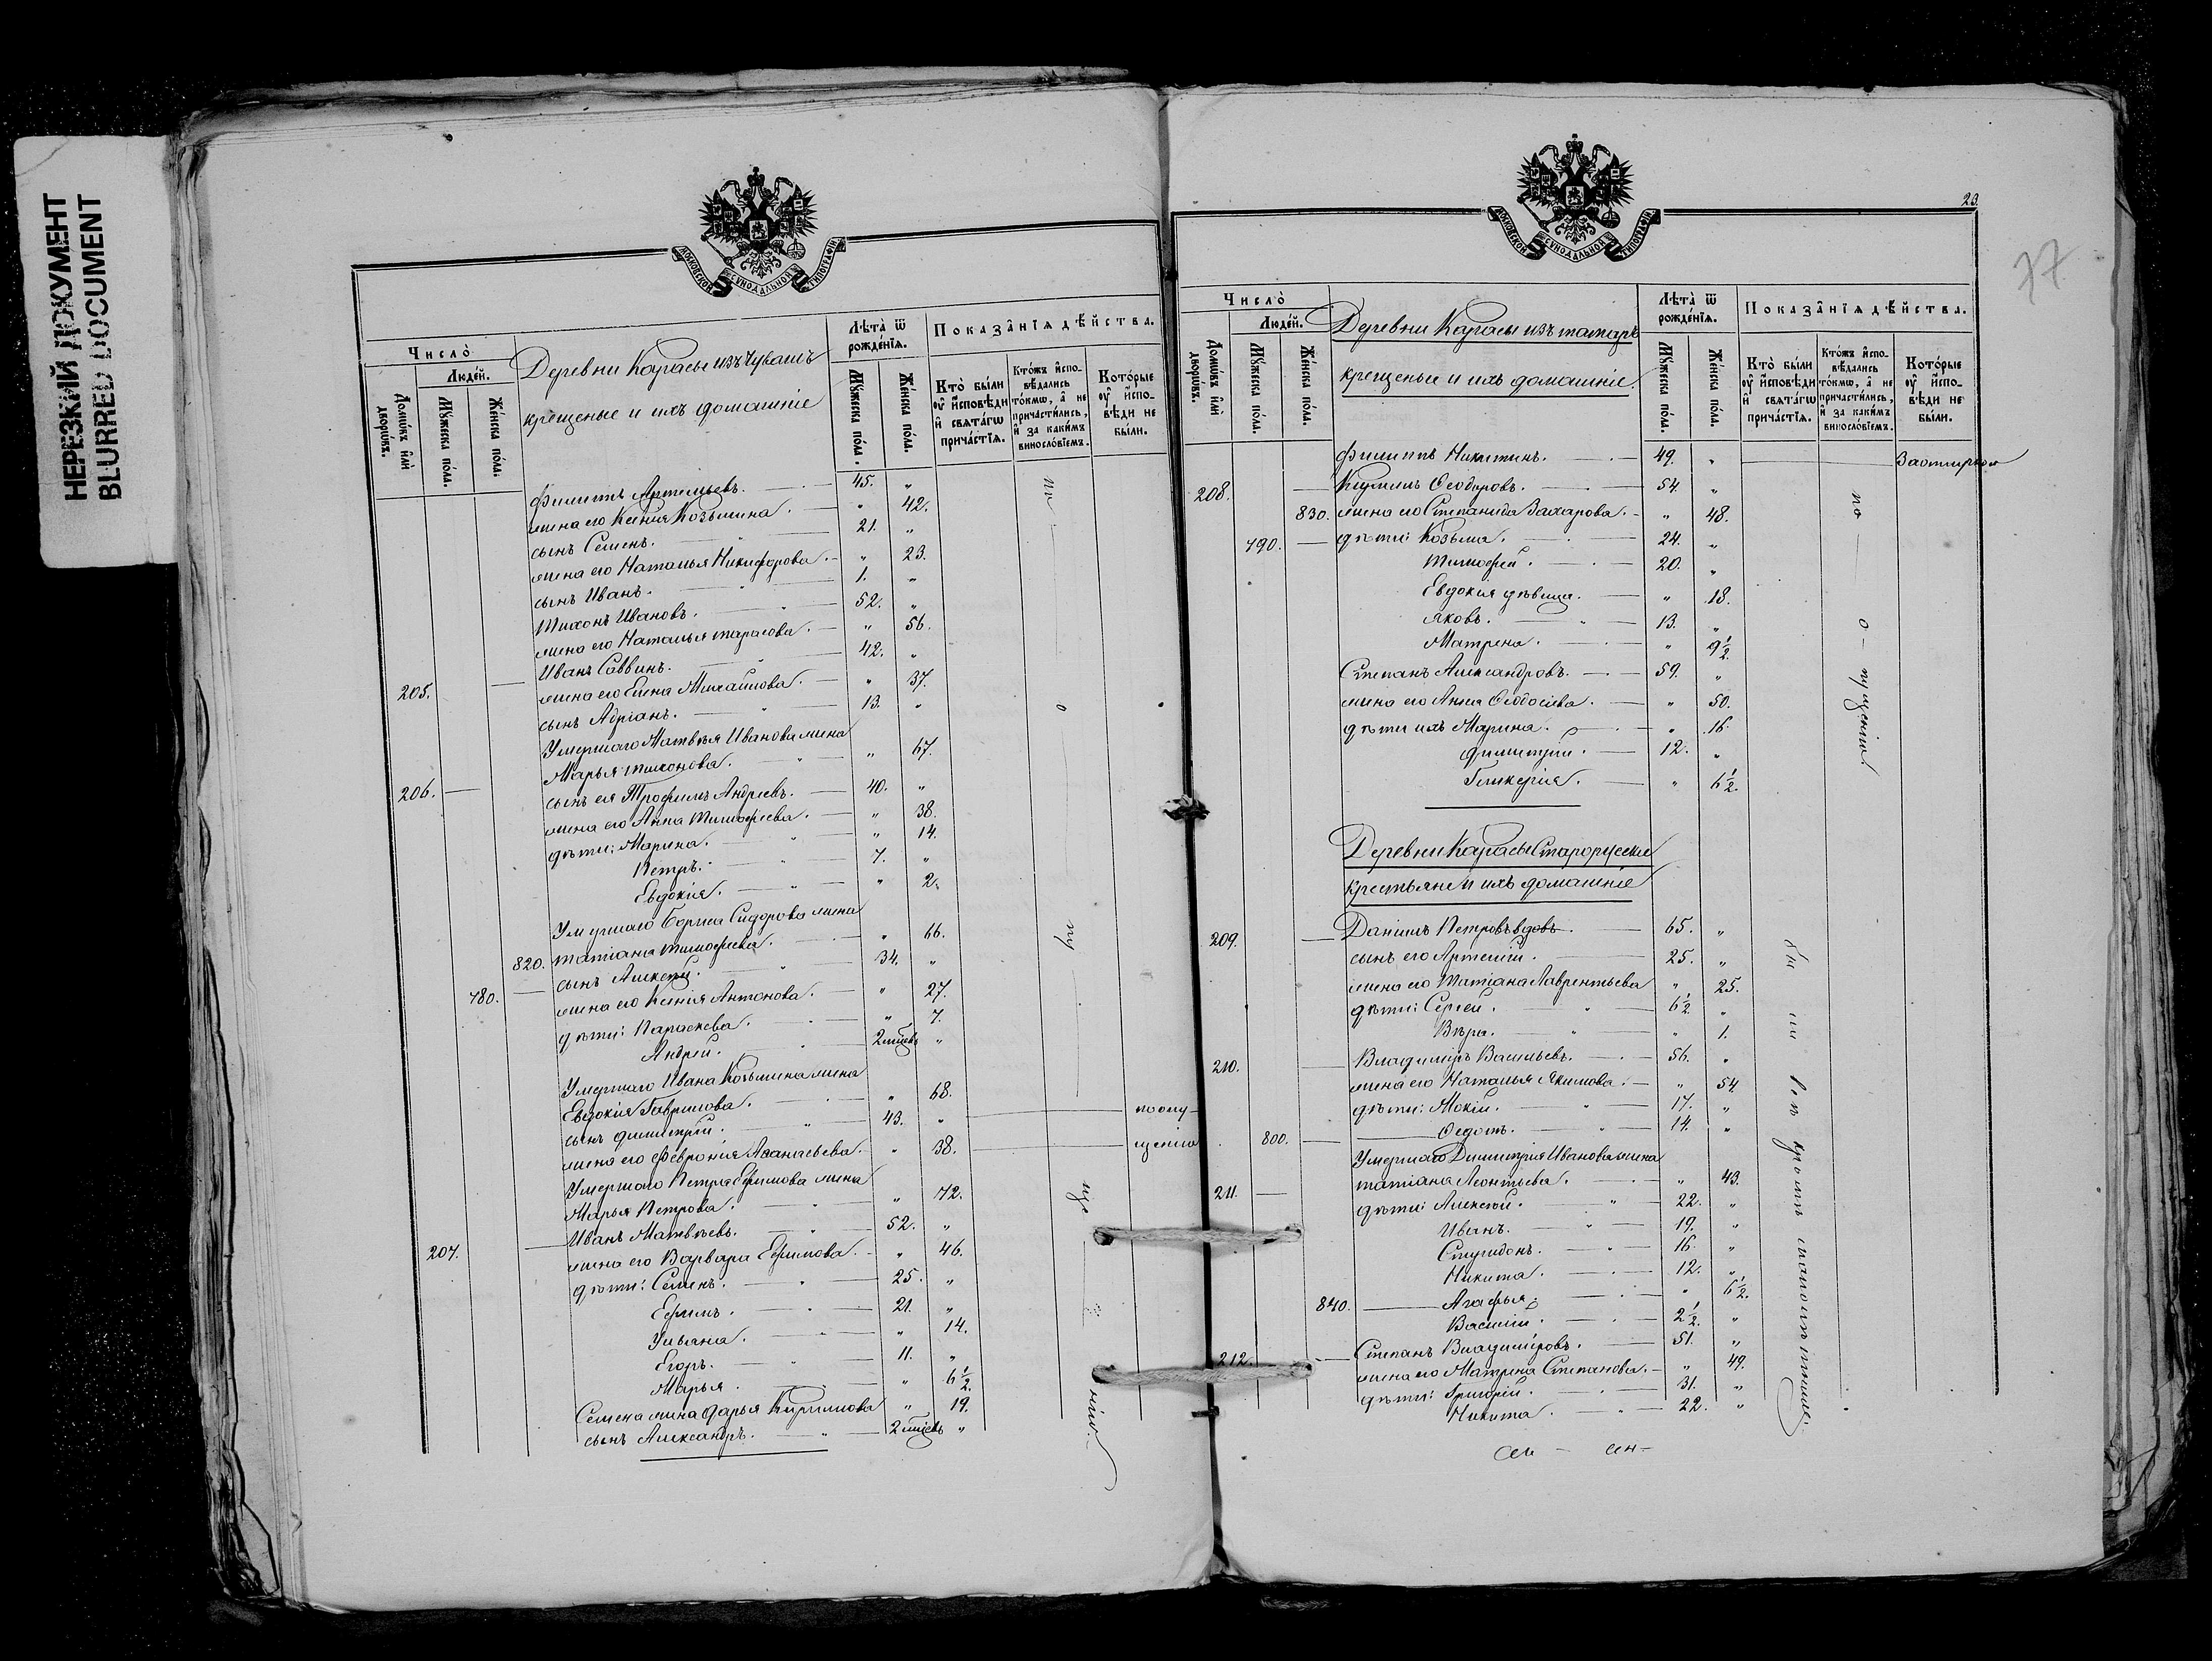 НЕРЕЗКИЙ ДОКУМЕНТ
BLURRED DOCUMENT
МОСКОВСКОЙ СѴНОДАЛЬНОЙ ТИПОГРАФІИ
Число̀
Людéй.
Домѡ́въ и҆лѝ дворѡ́въ.
Мꙋ́жеска по́ла.
Же́нска по́ла.
Деревни Карасы изъ чувашъ
крещеные и ихъ домашніе
Лѣ́та ѿ рожде́нїѧ.
Мꙋ́жеска по́ла.
Же́нска по́ла.
Показа̂нїѧ дѣ́йства.
Кто̀ бы́ли оу҆ и҆сповѣ́ди и҆ свѧта́гѡ прича́стїѧ.
Кто́жъ и҆спо- вѣ́дались то́кмѡ, а҆ не причасти́лись, и҆ за каки́мъ винослові́емъ.
Кото́рые оу҆ и҆спо- вѣ́ди не бы́ли.
Филиппъ Артемьевъ. 45. "
жена его Ксенія Козьмина. " 42.
сынъ Семенъ. 21. "
жена его Наталья Никифорова. " 23.
сынъ Иванъ. 1. "
Тихонъ Ивановъ. 52. "
жена его Наталья Тарасова. " 56.
205. Иванъ Саввинъ. 42. "
жена его Елена Михайлова. " 37.
сынъ Адріанъ. 13. "
Умершаго Матвѣя Иванова жена
Марья Тихонова. " 67.
206. сынъ ея Трофимъ Андреевъ. 40. "
жена его Анна Тимофеева. " 38.
дѣти: Марина. " 14.
Петръ. 7. "
Евдокія. " 2.
Умершаго Бориса Сидорова жена
820. Татіана Тимофеева. " 66.
780. сынъ Алексѣй. 34. "
жена его Ксенія Антонова. " 27.
дѣти: Параскева. " 7.
Андрей. 2 мѣсяц. "
Умершаго Ивана Козьмина жена
Евдокія Гаврилова. " 68.
сынъ Димитрій. 43. " по опу-
жена его Февронія Аѳанасьева. " 38. щенію
Умершаго Петра Ефимова жена
Марья Петрова. " 72.
207. Иванъ Матвѣевъ. 52. "
жена его Варвара Ефимова. " 46.
дѣти: Семенъ. 25. "
Ефимъ. 21. "
Ульяна. " 14.
Егоръ. 11. "
Марья. " 6½.
Семена жена Дарья Кириллова " 19.
сынъ Александръ. 2 мѣсяц. "
по о пу ще нію.
МОСКОВСКОЙ СѴНОДАЛЬНОЙ ТИПОГРАФІИ
23.
77
Число̀
Людéй.
Домѡ́въ и҆лѝ дворѡ́въ.
Мꙋ́жеска по́ла.
Же́нска по́ла.
Деревни Карасы изъ татаръ
крещеные и ихъ домашніе.
Лѣ́та ѿ рожде́нїѧ.
Мꙋ́жеска по́ла.
Же́нска по́ла.
Показа̂нїѧ дѣ́йства.
Кто̀ бы́ли оу҆ и҆сповѣ́ди и҆ свѧта́гѡ прича́стїѧ.
Кто́жъ и҆спо- вѣ́дались то́кмѡ, а҆ не причасти́лись, и҆ за каки́мъ винослові́емъ.
Кото́рые оу҆ и҆спо- вѣ́ди не бы́ли.
Филиппъ Никитинъ. 49. "
208. Кириллъ Ѳеодоровъ. 54. "
830. жена его Степанида Захарова. " 48.
790. дѣти: Козьма. 24. "
Тимофей. 20. "
Евдокія дѣвица. " 18.
Яковъ. 13. "
Матрена. " 9½.
Степанъ Александровъ. 59. "
жена его Анна Ѳеодосіева. " 50.
дѣти ихъ Марина. " 16.
Димитрій. 12. "
Гликерія. " 6½.
по о-пущенію
Деревни Карасы Старорусскіе
крестьяне и ихъ домашніе
209. Даніилъ Петровъ вдовъ. 65. "
сынъ его Артемій. 25. "
жена его Татіана Лаврентьева " 25.
дѣти: Сергей. 6½ "
Вѣра. " 1.
210. Владиміръ Васильевъ. 56. "
жена его Наталья Якимова. " 54.
дѣти: Мокій. 17. "
800. Ѳедотъ. 14. "
Умершаго Димитрія Иванова жена
211. Татіана Леонтьева. " 43.
дѣти: Алексѣй. 22. "
Иванъ. 19. "
Спиридонъ. 16. "
Никита. 12. "
840. Агафья. " 6½.
Василій. 2½. "
212. Степанъ Владиміровъ. 51. "
жена его Матрена Степанова. " 49.
дѣти: Григорій. 31. "
Никита. 22. "